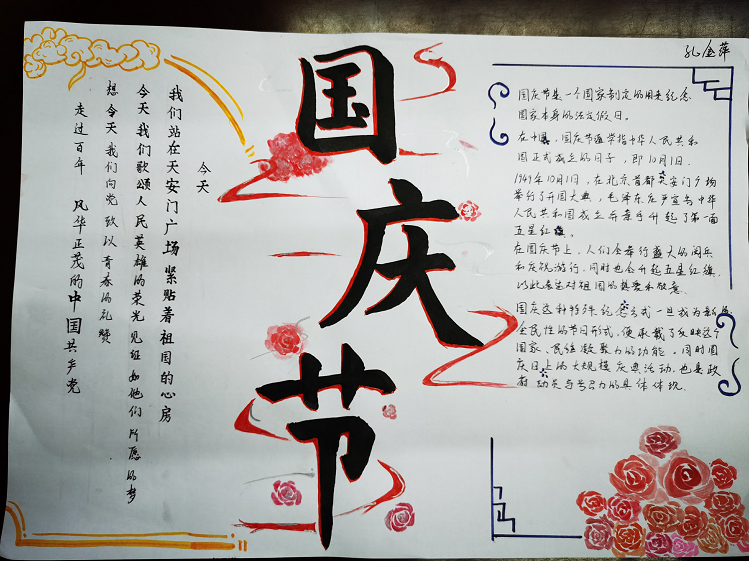 孔金萍
国庆节
今天
我们站在天安门广场 紧贴着祖国的心房
今天我们歌颂人民英雄的荣光 见证如他们所愿的梦
想 今天我们向党致以青春的礼赞
走过百年 风华正茂的中国共产党
国庆节是一个国家制定的用来纪念
国家本身的法定假日。
在中国,国庆节通常指中华人民共和
国正式成立的日子,即10月1日.
1949年10月1日,在北京首都天安门广场
举行了开国大典,毛泽东庄严宣告中华
人民共和国成立后亲手升起了第一面
五星红旗。
在国庆节上,人们会举行盛大的阅兵
和庆祝游行,同时也会升起五星红旗
以此表达对祖国的热爱和敬意.
国庆这种特殊纪念方式一旦成为新的
全民性的节日形式,便承载了反映这个
国家、民族凝聚力的功能。同时国
庆日上的大规模庆典活动,也是政
府动员与号召力的具体体现.